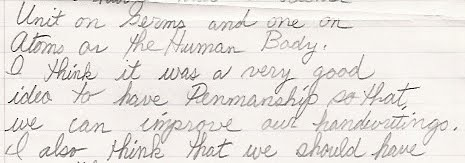 Unit on Germs and one on
Atoms or the Human Body.
I think it was a very good
idea to have Penmanship so that
we can improve our handwritings.
I also think that we should have